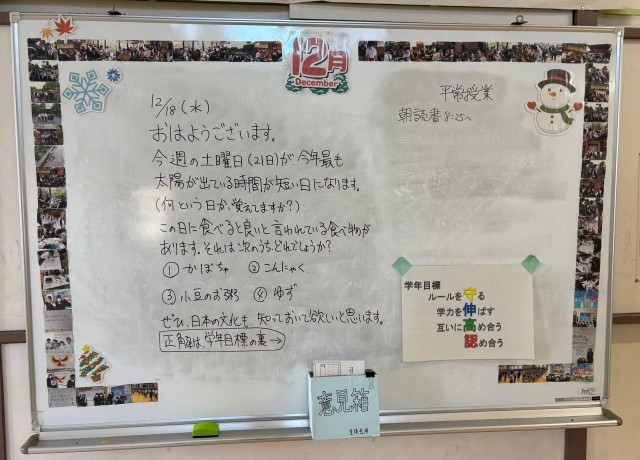 12月
December
12/18(水)
おはようございます。
今週の土曜日(21日)が今年最も
太陽が出ている時間が短い日になります。
(何という日か、覚えてますか?)
この日に食べると良いと言われている食べ物が
あります。それは次のうち、どれでしょうか?
① かぼちゃ ② こんにゃく
③ 小豆のお粥 ④ ゆず
ぜひ、日本の文化も 知っておいて欲しいと思います。
正解は、学年目標の裏→
平常授業
朝読書 8:25~
学年目標
ルールを守る
学力を伸ばす
互いに高め合う
認め合う
意見箱